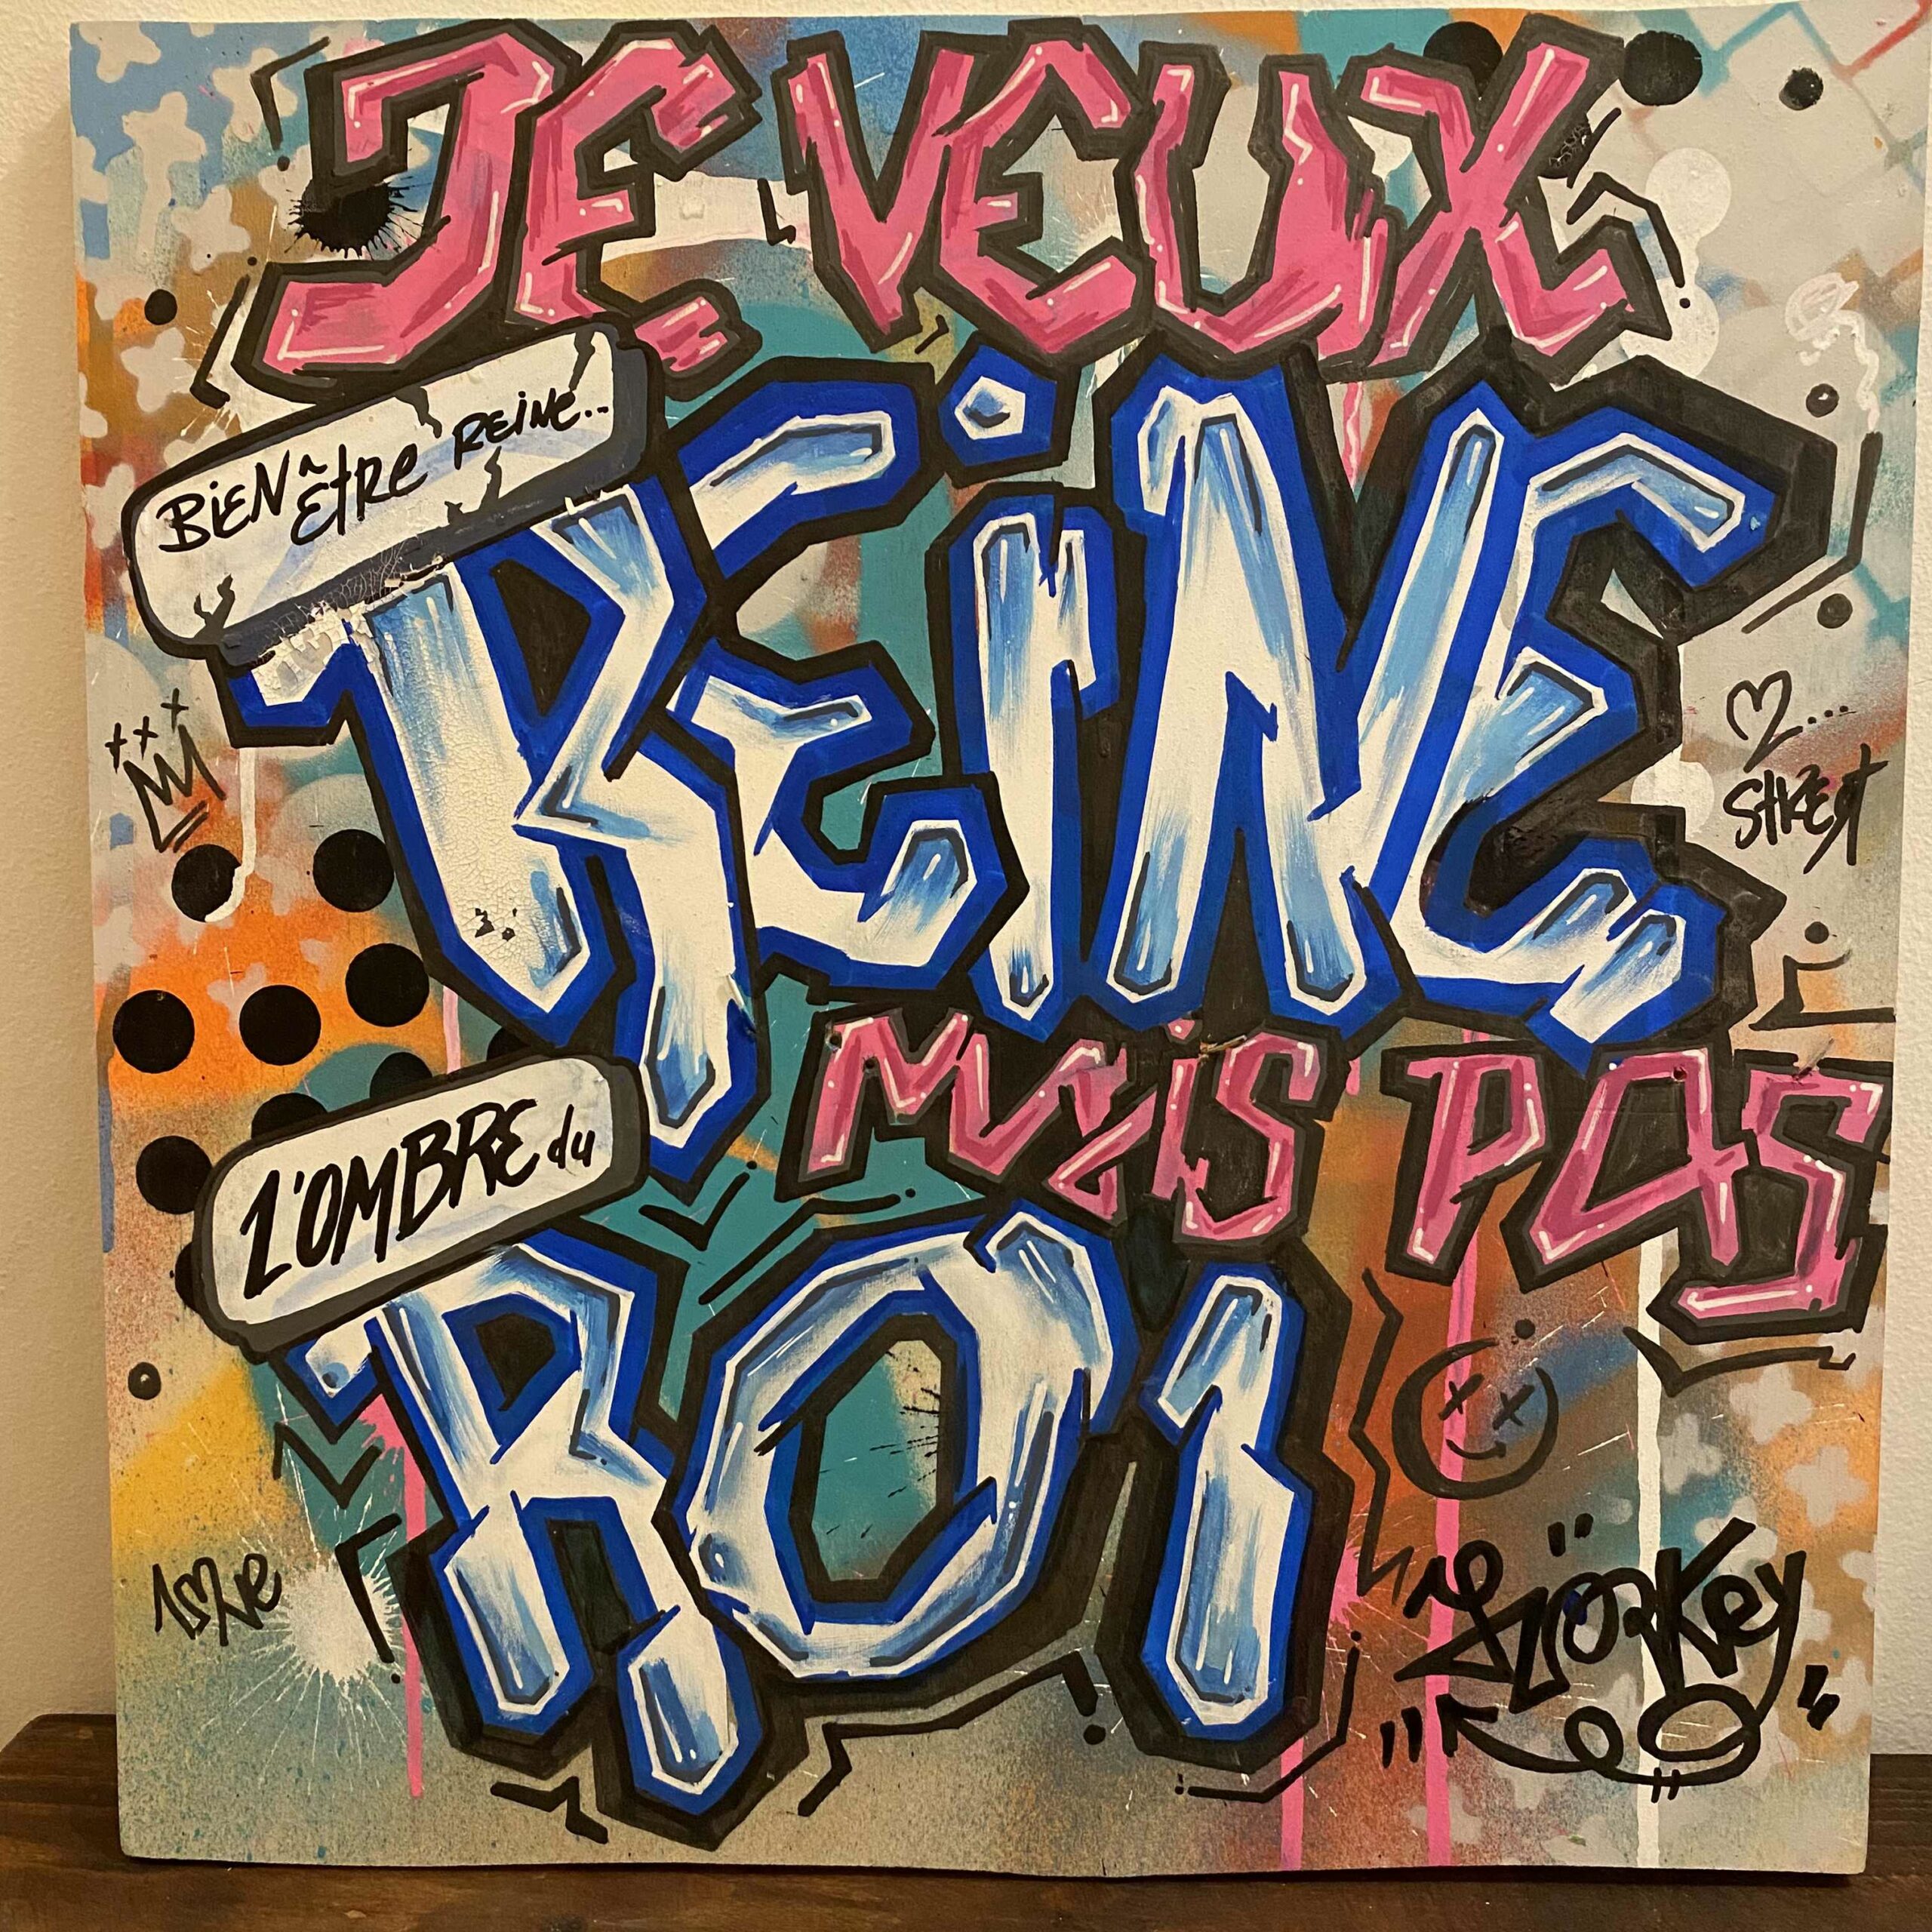 JE VEUX
BiEN Être REiNE..
REiNE
♡....
StREet
MaiS PaS
L'OMBRE du
ROi
Lo♡ve